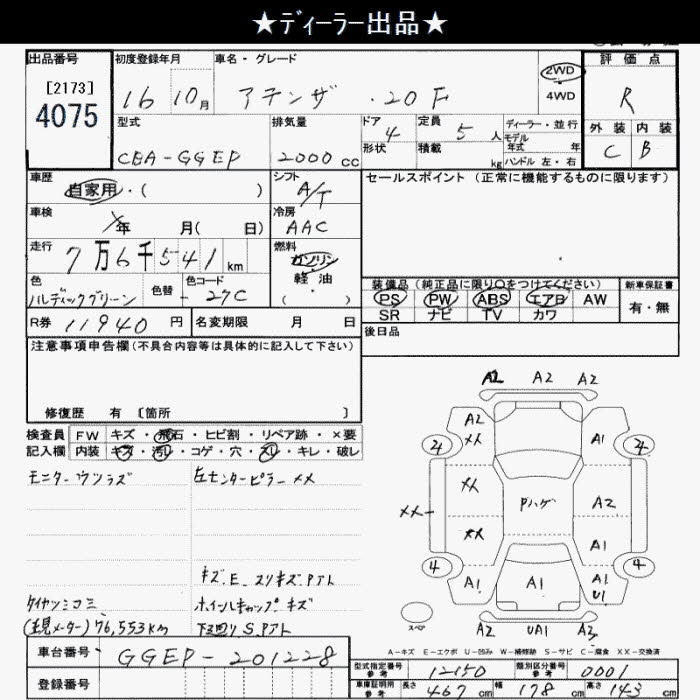 ★ディーラー出品★
出品番号 初度登録年月 車名・グレード 2WD 評価点
[2173] 4075 16 10月 アテンザ ・20F 4WD R
型式 排気量 ドア 4 定員 5人 ディーラー・並行 外装 内装
CBA-GGEP 2000cc 形状 積載 kg モデル年式 年 ハンドル 左・右 C B
車歴 自家用・( ) シフト A/T セールスポイント (正常に機能するものに限ります)
車検 年 月( 日) 冷房 AAC
走行 7万6千541km 燃料 ガソリン 軽・油 ( )
色 色替 色コード 27C 装備品 (純正品に限り○をつけてください) 新車保証書
PS PW ABS エアB AW 有・無
SR ナビ TV カワ
R券 11940円 名変期限 月 日 後日品
注意事項申告欄(不具合内容等は具体的に記入して下さい)
修復歴 有 〔箇所 〕
検査員 FW キズ・飛石・ヒビ割・リペア跡・×要
記入欄 内装 キズ・汚レ・コゲ・穴・スレ・キレ・破レ
モニターウツラズ 左センターピラーメメ
キズ.E.スリキズ.Pアト
タイヤツミコミ ホイルキャップキズ
(現メーター)76,553km 下回りS.Pアト
A2 A2 A2
A2 メメ A1
4 4
メメ Pハゲ A2
メメー メメ A1
4 4
A1 A1 A1 U1
スペア A2 UA1 A2
A-キズ E-エクボ U-凹み W-補修跡 S-サビ C-腐食 XX-交換済
車台番号 GGEP-201228
登録番号
型式指定番号 参考 12150 類別区分番号 参考 0001
車庫証明用 参考 長さ 467cm 幅 178cm 高さ 143cm